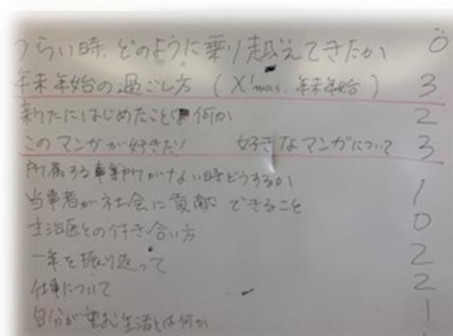 つらい時、どのように乗り越えてきたか 0
年末年始の過ごし方 (X'mas、年末年始) 3
新たにはじめたことは何か 2
このマンガが好きだ! 好きなマンガについて 3
所属する事業所がない時どうするか 1
当事者が社会に貢献できること 0
主治医との付き合い方 2
一年を振り返って 2
仕事について 1
自分が望む生活とは何か